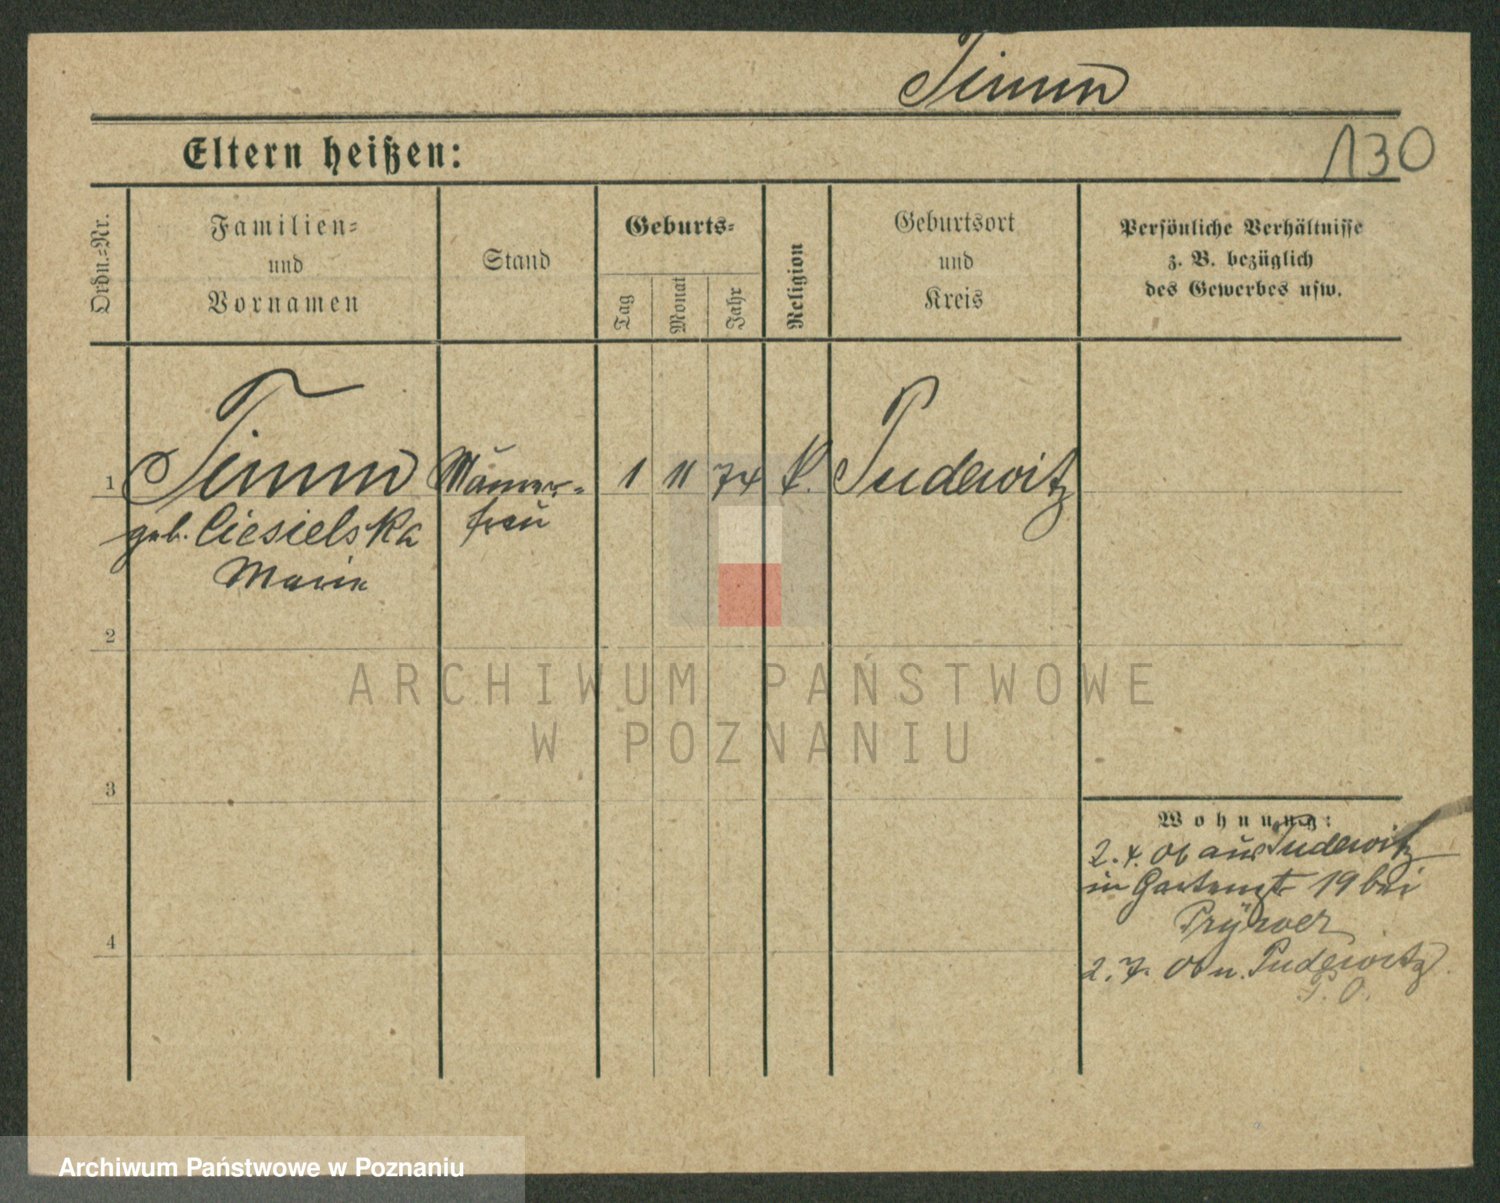 Timm
Eltern heißen:
130
Ordn.-Nr.
Familien-
und
Vornamen
Stand
Geburts-
Tag
Monat
Jahr
Religion
Geburtsort
und
Kreis
Persönliche Verhältnisse
z. B. bezüglich
des Gewerbes usw.
1
Timm
geb. Ciesielska
Marie
frau
1 11 74 k. Pudewitz
2
3
4
Wohnung:
2. 4. 06 aus Pudewitz
in Gartenst 19 bei
2. 7. 06 n. Pudewitz
P. O.
ARCHIWUM PAŃSTWOWE
W POZNANIU
Archiwum Państwowe w Poznaniu